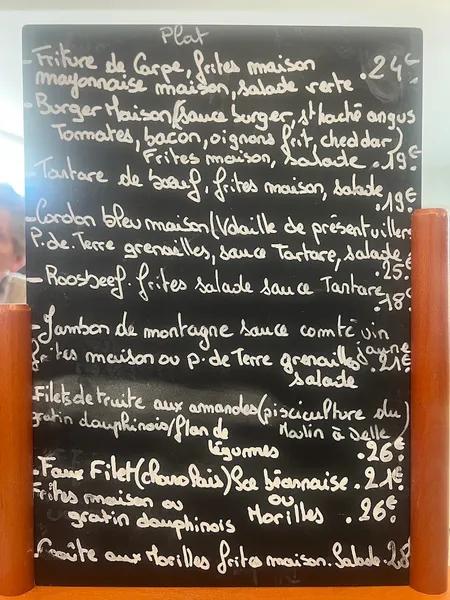 Plat
- Friture de Carpe, frites maison
mayonnaise maison, salade verte .24€
- Burger Maison (sauce burger, st haché angus
Tomates, bacon, oignons frit, cheddar)
Frites maison, salade .19€
- Tartare de bœuf, frites maison, salade
.19€
- Cordon bleu maison (Volaille de présentvillers
P. de. Terre grenailles, sauce Tartare, salade
.25€
- Roosbeef. frites salade sauce Tartare
.18€
- Jambon de montagne sauce comté vin
jaune
frites maison ou p. de Terre grenailles .21€
salade
Filets de truite aux amandes (pisciculture du
gratin dauphinois/flan de Moulin à Delle)
légumes .26€
. Faux Filet (charolais) Sce béarnaise .21€
Frites maison ou ou
gratin dauphinois Morilles .26€
Croûte aux Morilles frites maison. Salade .28